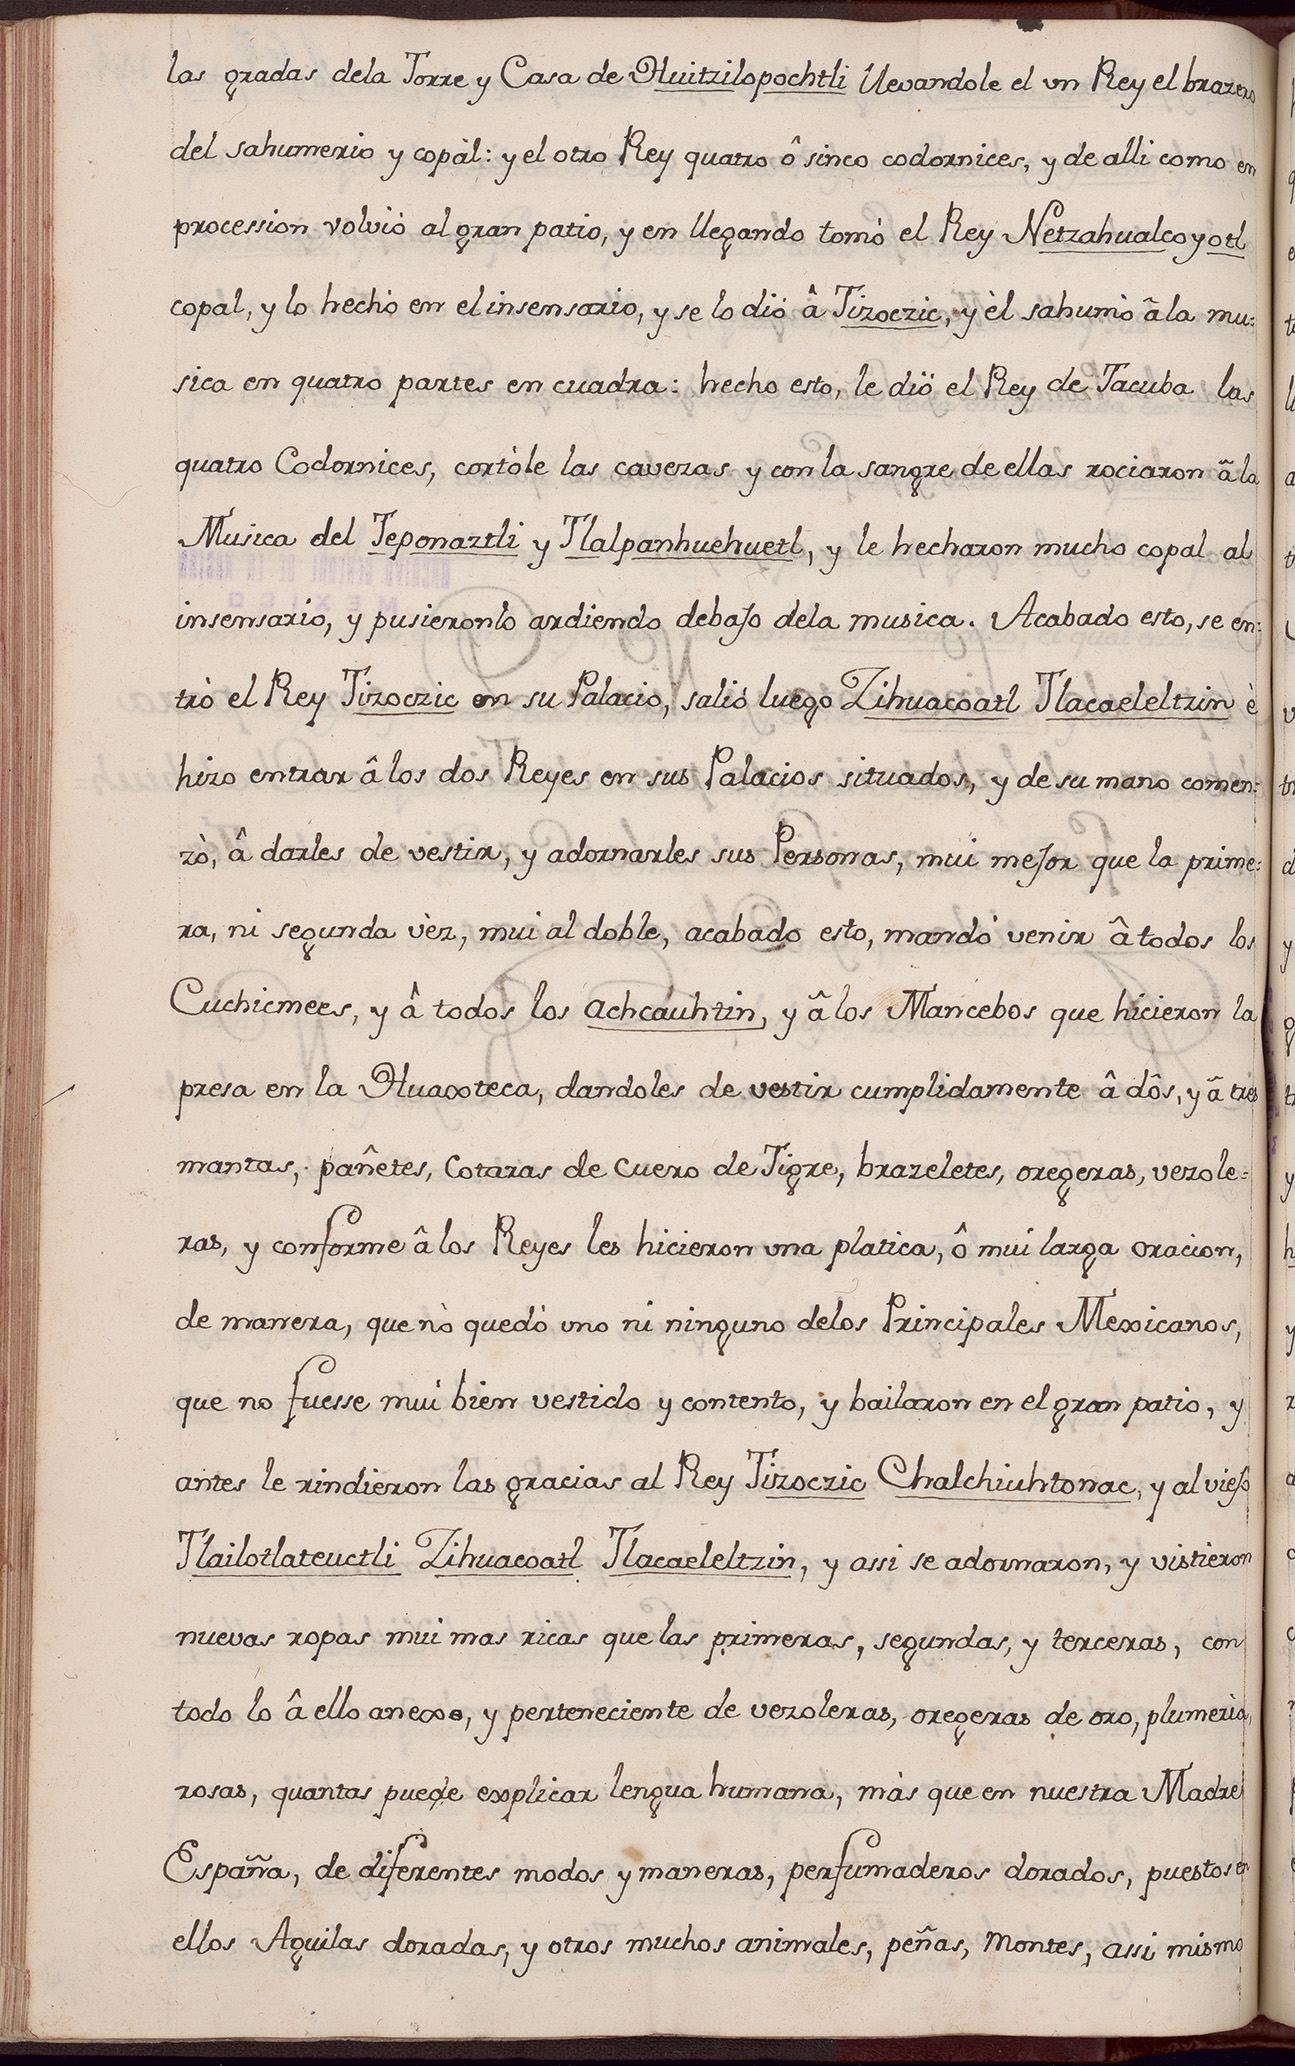 las gradas dela Torre y Casa de Huitzilopochtli llevandole el vn Rey el brazero
del sahumerio y copàl: y el otro Rey quatro ô sinco codornices, y de alli como en
procession volviò al gran patio, y en llegando tomò el Rey Netzahualcoyotl
copal, y lo hechò en el insensario, y se lo diò â Tizoczic, y èl sahumò âla mu=
sica en quatro partes en cuadra: hecho esto, le diò el Rey de Tacuba las
quatro Codornices, cortòle las cavezas y con la sangre de ellas rociaron âla
Musica del Teponaztli y Tlalpanhuehuetl, y le hecharon mucho copal al
insensario, y pusieronlo ardiendo debajo dela musica. Acabado esto, se en=
trò el Rey Tizoczic en su Palacio, saliò luego Zihuacoatl Tlacaeleltzin è
hizo entrar â los dos Reyes en sus Palacios situados, y de su mano comen=
zò, â darles de vestir, y adornarles sus Personas, mui mejor que la prime=
ra, ni segunda vèz, mui al doble, acabado esto, mandò venir â todos los
Cuchicmees, y â todos los achcáuhtin, y â los Mancebos que hicieron la
presa en la Huaxteca, dandoles de vestir cumplidamente â dôs, y â tres
mantas, pañetes, cotaras de cuero de Tigre, brazeletes, oregeras, vezole=
ras, y conforme â los Reyes les hicieron una platica, ô mui larga oracion,
de manera, que nò quedó uno ni ninguno delos Principales Mexicanos,
que no fuesse mui bien vestido y contento, y bailaron en el gran patio, y
antes le rindieron las gracias al Rey Tizoczic Chalchiuhtonac, y al viejo
Tlailotlateuctli Zihuacoatl Tlacaeleltzin, y assi se adornaron, y vistieron
nuevas ropas mui mas ricas que las primeras, segundas, y terceras, con
todo lo â ello anexo, y perteneciente de vezoleras, oregeras de oro, plumerìa,
rosas, quantas puede explicar lengua humana, màs que en nuestra Madre
España, de diferentes modos y maneras, perfumaderos dorados, puestos en
ellos Aguilas doradas, y otros muchos animales, peñas, montes, assi mismo